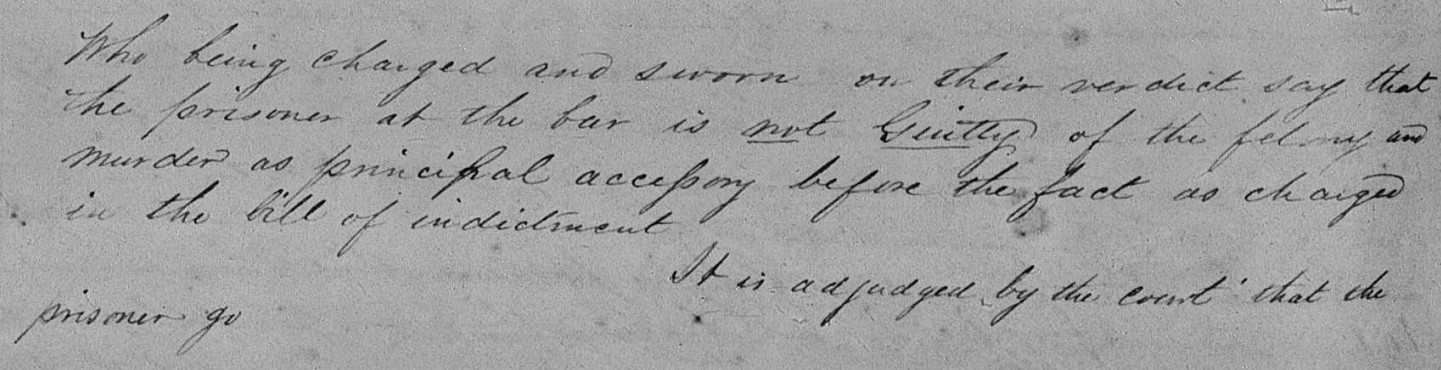 Who being charged and sworn on their verdict say that
the prisoner at the bar is not Guilty of the felony and
murder as principal accessory before the fact as charged
in the bill of indictment
It is adjudged by the court that the
prisoner go